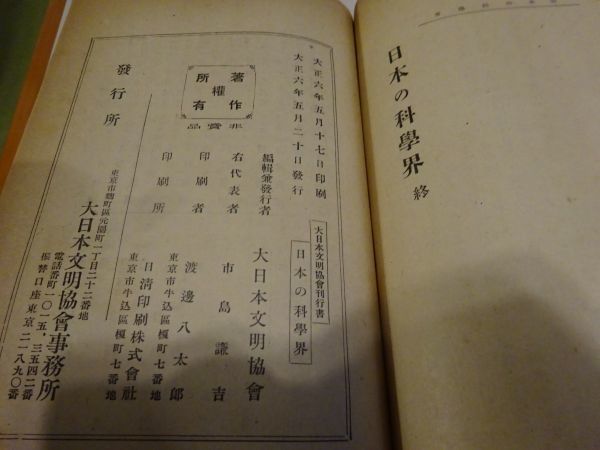 日本の科學界 終
大正六年五月十七日印刷
大正六年五月二十日發行
大日本文明協會刊行書
日本の科學界
著作權所有
非賣品
編輯兼發行者 大日本文明協會
右代表者 市島謙吉
印刷者 渡邊八太郎
東京市牛込區榎町七番地
印刷所 日清印刷株式會社
東京市牛込區榎町七番地
發行所
東京市麴町區元園町一丁目二十二番地
大日本文明協會事務所
電話番町一〇一五，三五四二番
振替口座東京二一八九〇番